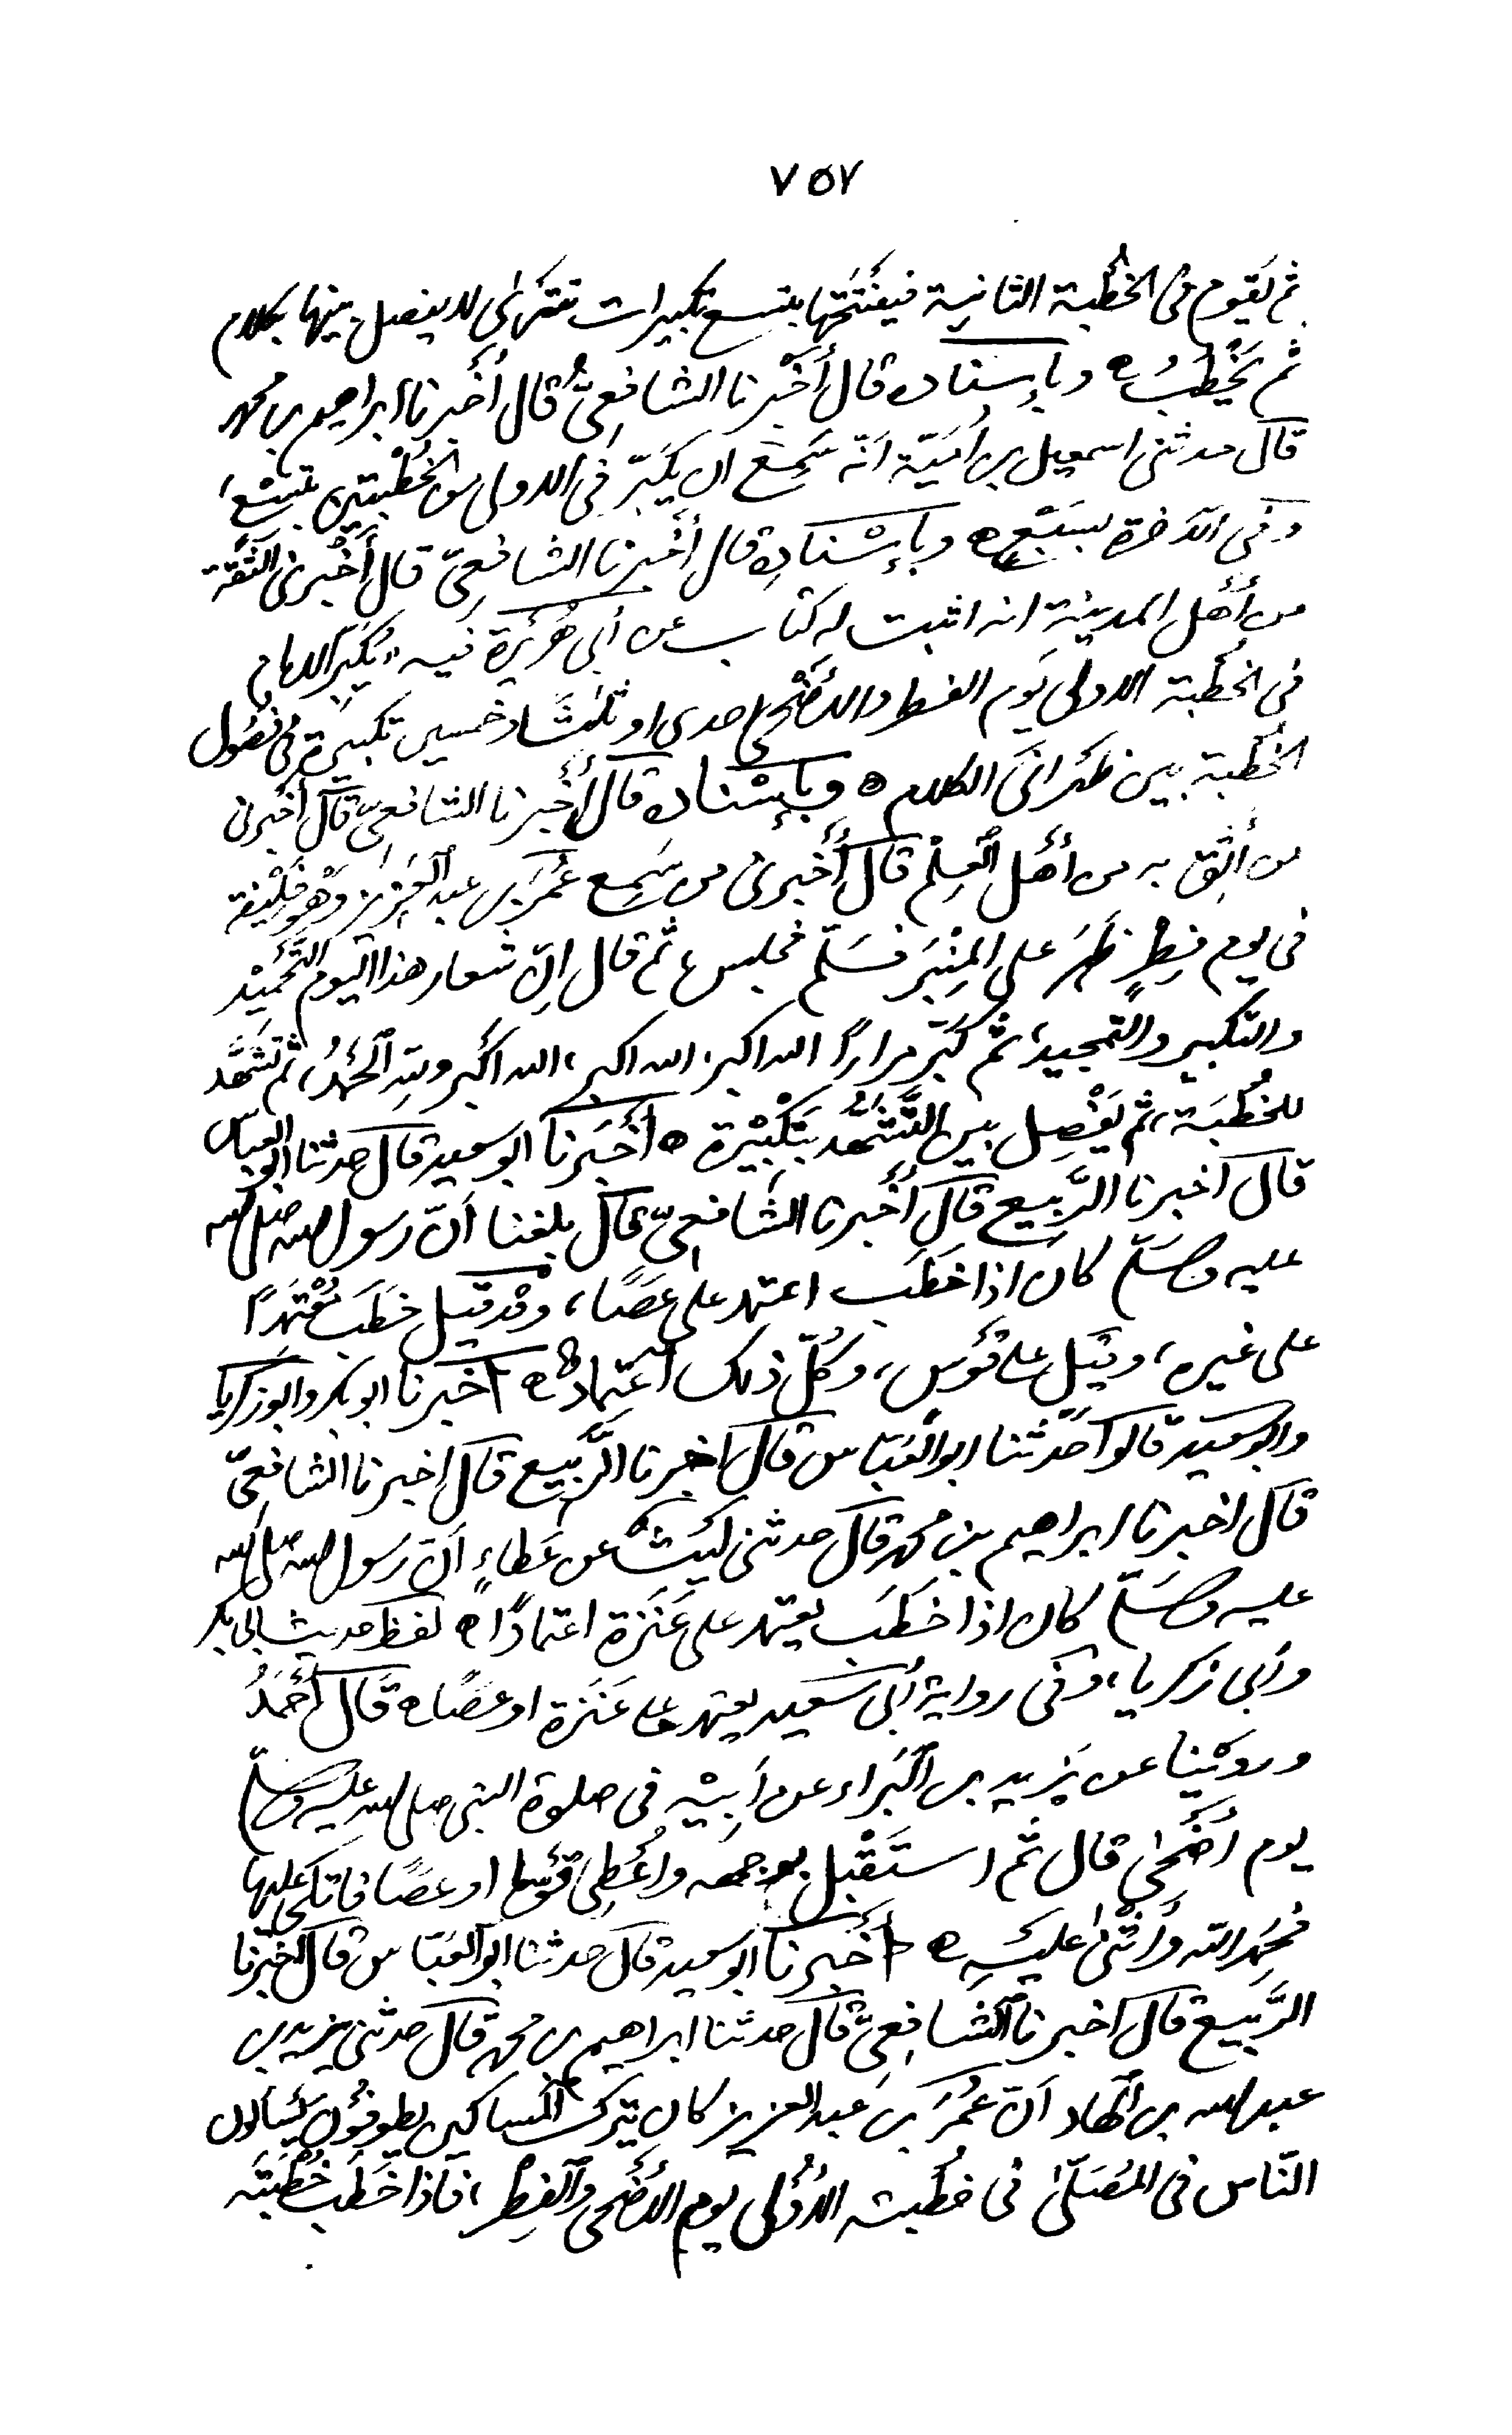 ٧٥٧
ثم يقوم فى الخُطْبة الثانية فيفتتحها بتسع تكبيرات تترى لا يفصل بينها بكلام
ثم يَخْطُبُ ه وبإسناده قال أَخْبرنا الشافِعِىّ قال أُخبرنا إبراهيم بن محمد
قال حدثنى اسمعيل بن اُمَيّة اَنّه سَمِعَ ان يكبّر فى الاولى من الخُطْبتين بتِسْع
وفى الآخرة بسَبْعٍ ه وبإسْنادِه قال أخبرنا الشافعىّ قال أَخْبرنى الثقة
من أَهْل المدينة انه اثبت له كتاب عن أبى هُرَيْرة فيه تكبير الامام
فى الخُطْبة الاولى يَوم الفطر والاَضْحى احدى او ثَلٰثًا وخمسين تكبيرة فى فصُول
الخُطْبة بين ظَهْرانَى الكلام ه وبإسْناده قال أَخْبرنا الشافعىّ قال أخبرنى
من أَثِق به من أهْل العِلْم قال أَخْبرنى من سَمِع عُمَرَ بن عبد العَزِيز وهو خليفة
فى يوم فِطرٍ ظَهَرَ على المِنْبَر فسَلّم فجلس، ثم قال اِنّ شعار هذا اليوم التَّحْمِيْد
والتكبير والتمجيد، ثم كَبّر مرارًا الله اكبر، الله اكبر، الله اَكْبر وللهِ الحَمْدُ، ثم تَشَهَّد
للخُطْبَة، ثم يَفْصِل بين التَّشَهُّد بتَكْبِيْرة ه أَخْبَرنا ابو سعيد قال حدثنا ابو العباس
قال اخبرنا الرَّبِيع قال أَخْبرنا الشافِعىّ قال بلغنا أَنّ رسول الله صلى الله
عليه وسَلّم كان اذا خَطَب اعتمد على عَصًا، وقد قيل خطَب مُعْتَمِدًا
على عنزة، وقيل على قَوْس، وكُلّ ذلك اعتماد ه اخبرنا ابو بكر وابو زكريا
وابو سعيد قالوا حَدّثنا ابو العَبّاس قال اخبرنا الرَّبِيع قال اخبرنا الشافعِىّ
قال اخبرنا ابراهيم بن محمد قال حدثنى لَيْثٌ عن عَطاءٍ اَنّ رَسول الله صلى الله
عليه وسَلّم كان اذا خَطَبَ يعتمد على عَنَزة اعتمادًا ه لفظ حديث ابى بكر
وأبى زكريا، وفى رواية أبى سَعيد يعتمد على عَنَزة او عَصًا ه قال أَحْمَدُ
وروَيْنا عن يَزِيد بن البَراء عن اَبِيْه فى صلوة النبى صلى الله عليه وسلّم
يوم أضْحٰى قال ثم استَقْبل بوجهه وأُعْطِىَ قَوْسا او عصًا فاتكى عليها
فحَمِد الله وأَثْنٰى عليهِ ه أَخْبرنا ابو سعيد قال حدثنا ابو العَبّاس قال اَخبرنا
الرَّبِيع قال اخبرنا الشافِعِىّ قال حدثنا ابراهيم بن محمد قال حدثنى يزيد بن
عبد الله بن الهاد اَنّ عُمَرَ بن عَبد العزيز كان يترك المساكين يطوفُون يَسْألون
النّاس فى المُصَلّىٰ فى خطْبته الاُوْلى يوم الاَضْحى والفِطْر، فاذا خَطَب خُطْبَتَه